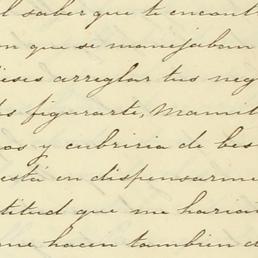 l saber que te encont
on que se manejaban
ieses arreglar tus neg
s figurarte, Mamit
os y cubriria de bes
esta en dispensarme
titud que me harian
me hacen tambien d